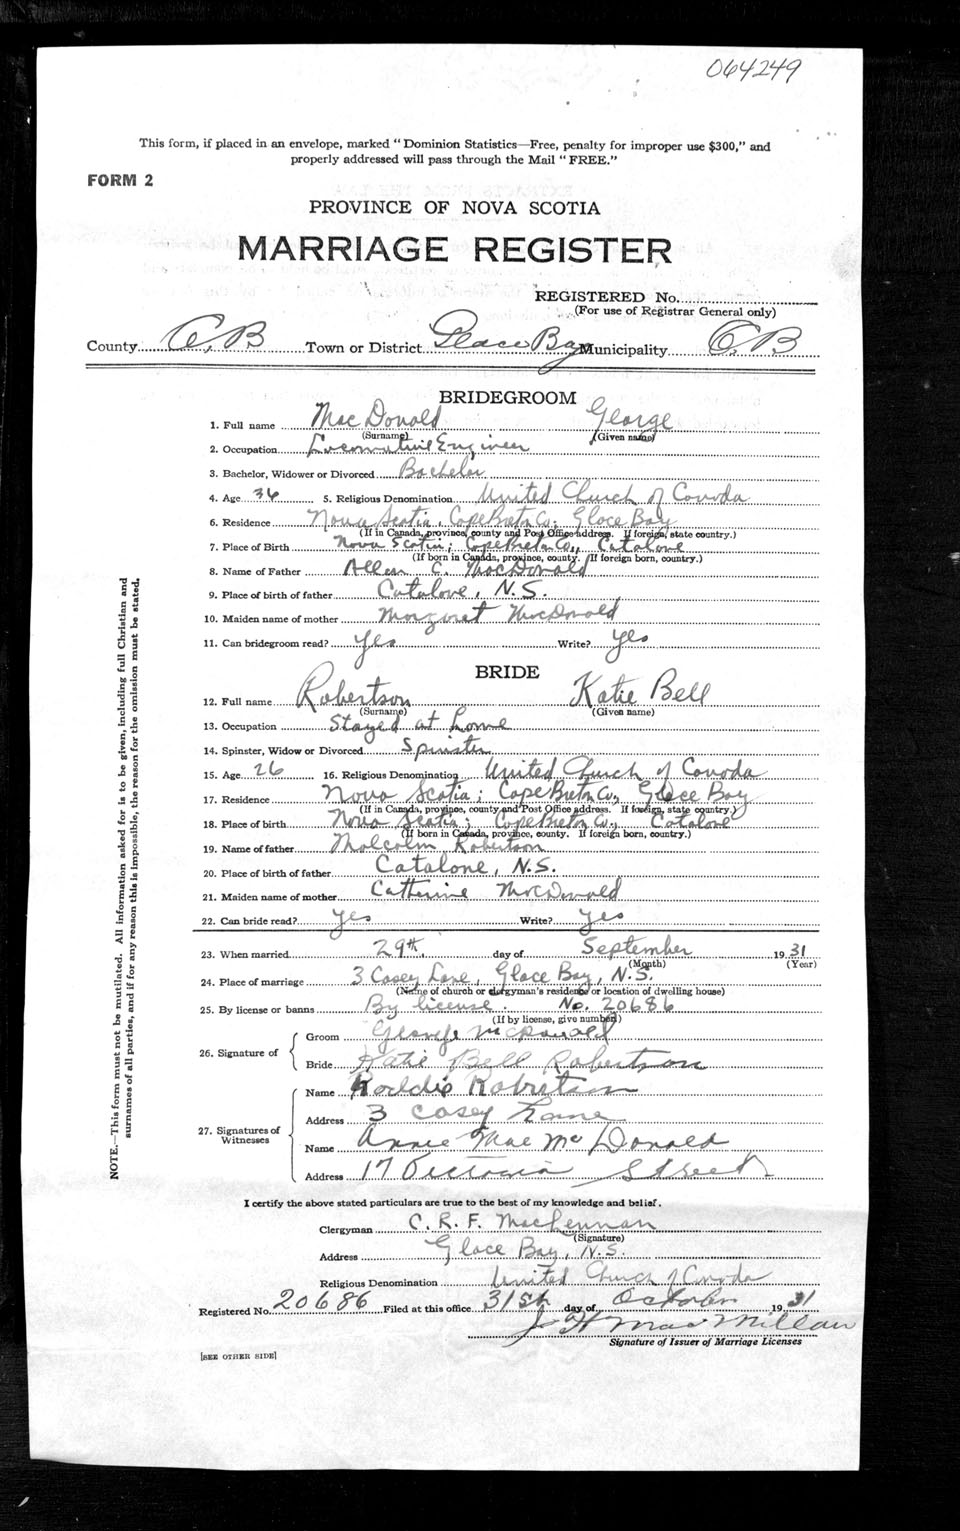 064249
This form, if placed in an envelope, marked "Dominion Statistics—Free, penalty for improper use $300," and
properly addressed will pass through the Mail "FREE."
FORM 2
PROVINCE OF NOVA SCOTIA
MARRIAGE REGISTER
REGISTERED No.
(For use of Registrar General only)
County C.B Town or District Glace Bay Municipality C.B
BRIDEGROOM
1. Full name MacDonald George
(Surname) (Given name)
2. Occupation Locomotive Engineer
3. Bachelor, Widower or Divorced Bachelor
4. Age 36 5. Religious Denomination United Church of Canada
6. Residence Nova Scotia, Cape Breton Co. Glace Bay
(If in Canada, province, county and Post Office address. If foreign, state country.)
7. Place of Birth Nova Scotia; Cape Breton Co., Catalone
(If born in Canada, province, county. If foreign born, country.)
8. Name of Father Allan C. MacDonald
9. Place of birth of father Catalone, N.S.
10. Maiden name of mother Margaret MacDonald
11. Can bridegroom read? Yes Write? Yes
BRIDE
12. Full name Robertson Katie Bell
(Surname) (Given name)
13. Occupation Stayed at home
14. Spinster, Widow or Divorced Spinster
15. Age 26 16. Religious Denomination United Church of Canada
17. Residence Nova Scotia; Cape Breton Co., Glace Bay
(If in Canada, province, county and Post Office address. If foreign, state country.)
18. Place of birth Nova Scotia; Cape Breton Co., Catalone
(If born in Canada, province, county. If foreign born, country.)
19. Name of father Malcolm Robertson
20. Place of birth of father Catalone, N.S.
21. Maiden name of mother Catherine MacDonald
22. Can bride read? Yes Write? Yes
23. When married 29th. day of September 1931
(Month) (Year)
24. Place of marriage 3 Casey Lane, Glace Bay, N.S.
(Name of church or clergyman's residence or location of dwelling house)
25. By license or banns By license. No. 20686
(If by license, give number)
26. Signature of
Groom George McDonald
Bride Katie Bell Robertson
27. Signatures of Witnesses
Name Roddie Robertson
Address 3 Casey Lane
Name Annie Mae McDonald
Address 17 Victoria Street
I certify the above stated particulars are true to the best of my knowledge and belief.
Clergyman C. R. F. MacLennan
(Signature)
Address Glace Bay, N.S.
Religious Denomination United Church of Canada
Registered No. 20686 Filed at this office 31st day of October 1931
J H MacMillan
Signature of Issuer of Marriage Licenses
[SEE OTHER SIDE]
NOTE.—This form must not be mutilated. All information asked for is to be given, including full Christian and
surnames of all parties, and if for any reason this is impossible, the reason for the omission must be stated.